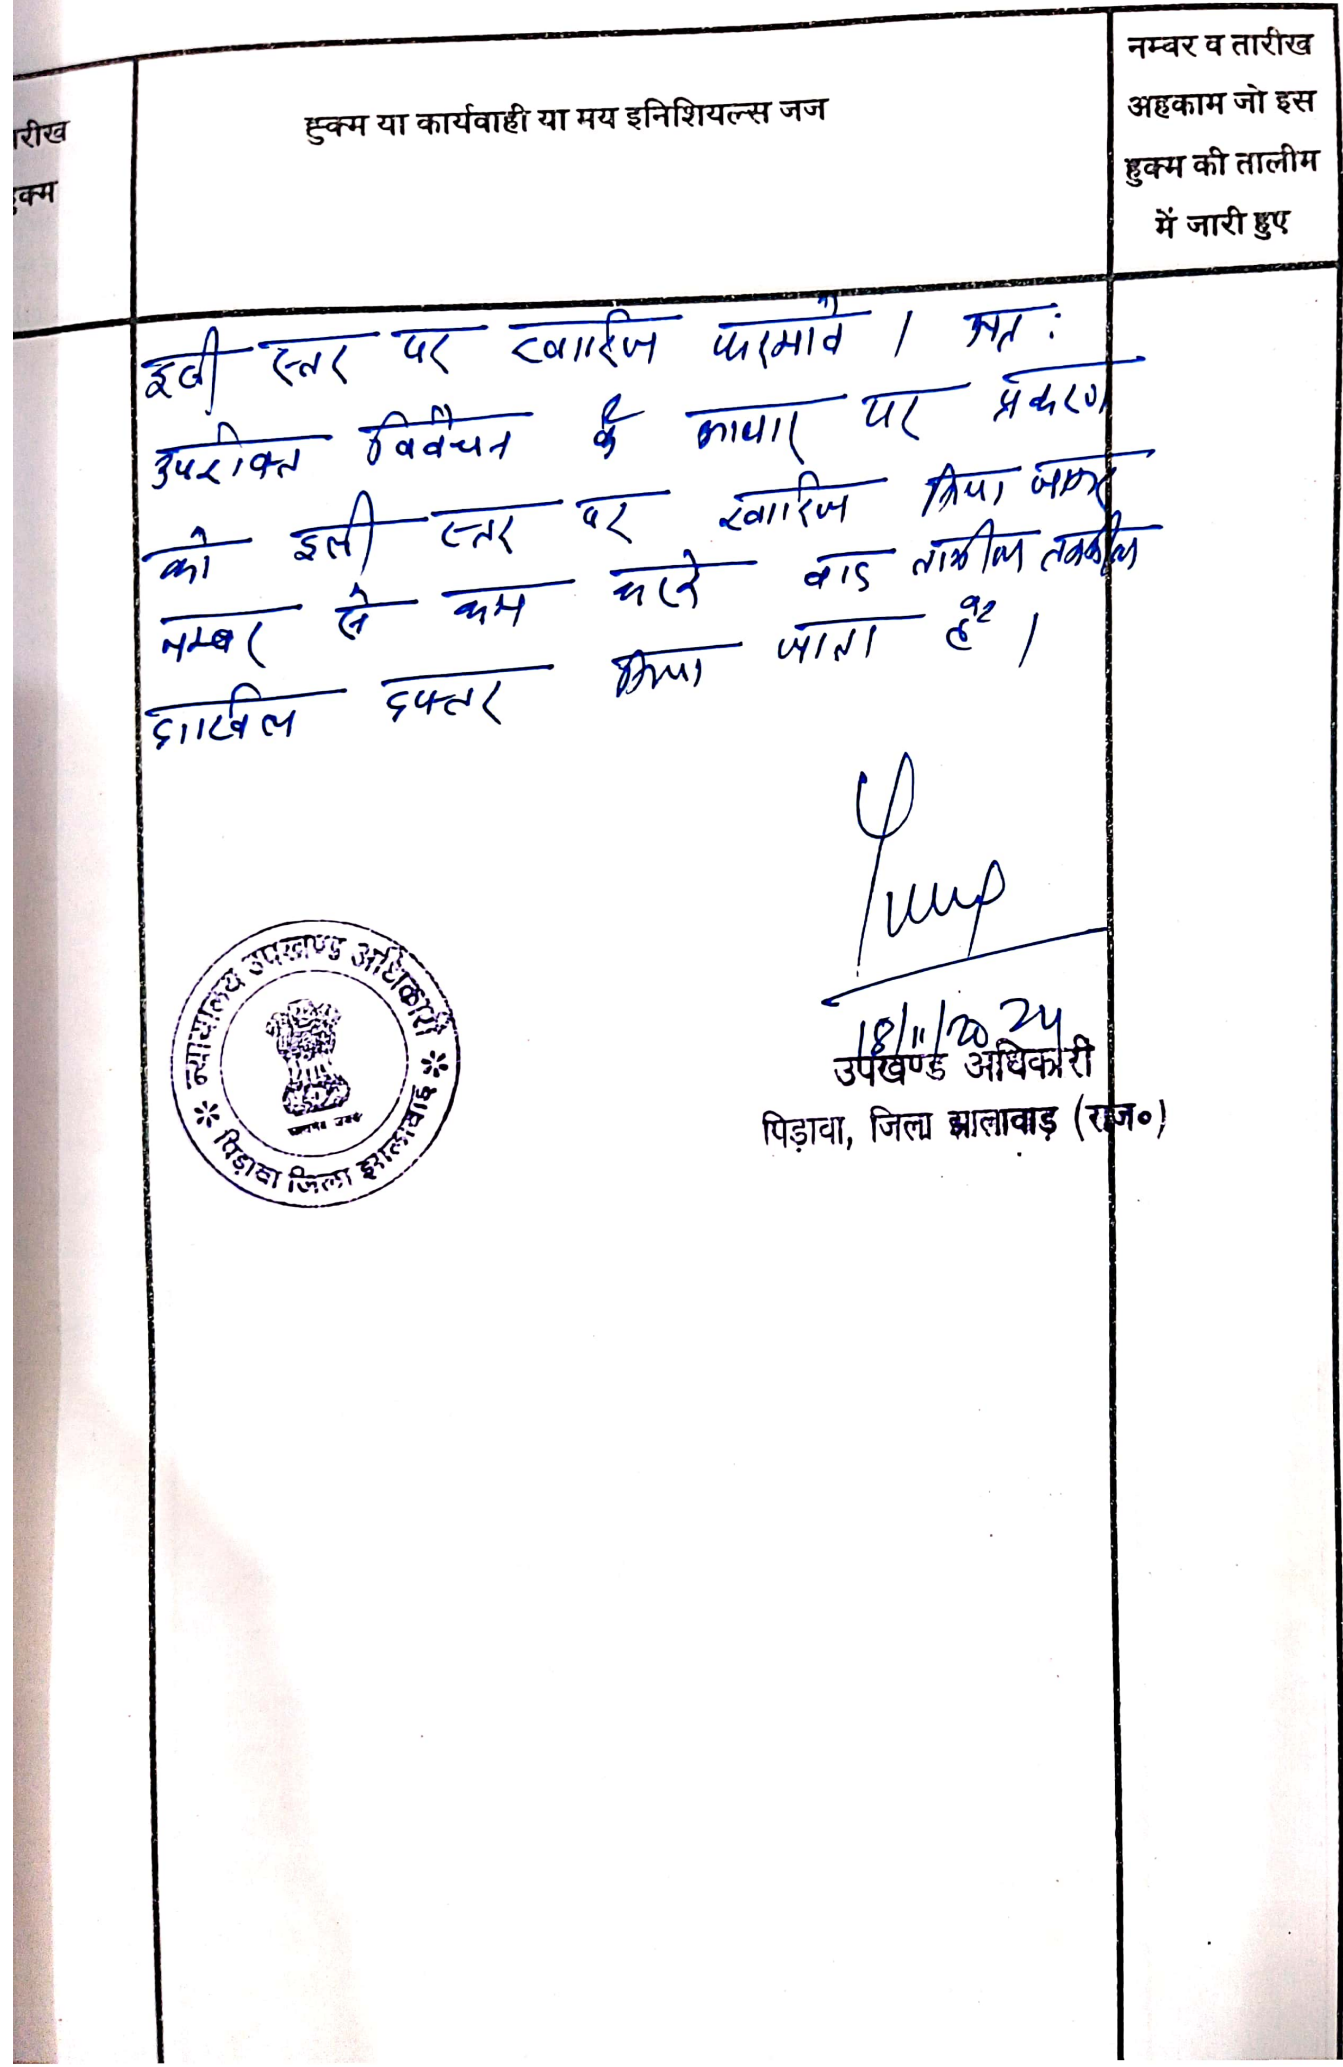 तारीख
हुक्म
हुक्म या कार्यवाही या मय इनिशियल्स जज
नम्बर व तारीख
अहकाम जो इस
हुक्म की तालीम
में जारी हुए
इसी स्तर पर खारिज फरमावें । अत:
उपरोक्त विवेचन के आधार पर प्रकरण
को इसी स्तर पर खारिज किया जाकर
नम्बर से कम करने बाद तामील तकमील
दाखिल दफ्तर किया जाता है ।
18/11/2024
उपखण्ड अधिकारी
पिड़ावा, जिला झालावाड़ (राज०)
न्यायालय उपखण्ड अधिकारी
* पिड़ावा जिला झालावाड़ *